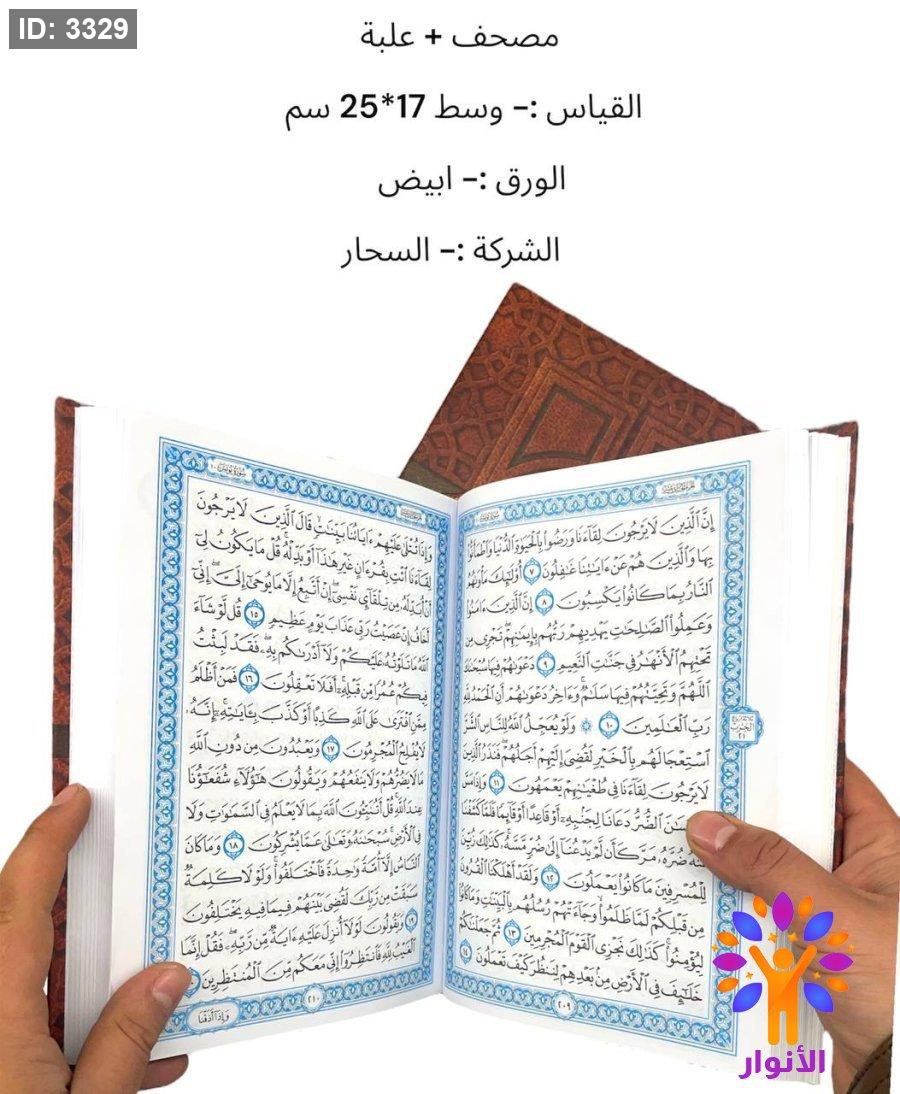 ID: 3329
مصحف + علبة
القياس :- وسط 17*25 سم
الورق :- ابيض
الشركة :- السحار
إِنَّ ٱلَّذِينَ لَا يَرْجُونَ لِقَآءَنَا وَرَضُوا۟ بِٱلْحَيَوٰةِ ٱلدُّنْيَا وَٱطْمَأَنُّوا۟
بِهَا وَٱلَّذِينَ هُمْ عَنْ ءَايَٰتِنَا غَٰفِلُونَ ٧ أُو۟لَٰٓئِكَ مَأْوَىٰهُمُ
ٱلنَّارُ بِمَا كَانُوا۟ يَكْسِبُونَ ٨ إِنَّ ٱلَّذِينَ ءَامَنُوا۟
وَعَمِلُوا۟ ٱلصَّٰلِحَٰتِ يَهْدِيهِمْ رَبُّهُم بِإِيمَٰنِهِمْ تَجْرِى مِن
تَحْتِهِمُ ٱلْأَنْهَٰرُ فِى جَنَّٰتِ ٱلنَّعِيمِ ٩ دَعْوَىٰهُمْ فِيهَا سُبْحَٰنَكَ
ٱللَّهُمَّ وَتَحِيَّتُهُمْ فِيهَا سَلَٰمٌ وَءَاخِرُ دَعْوَىٰهُمْ أَنِ ٱلْحَمْدُ لِلَّهِ
رَبِّ ٱلْعَٰلَمِينَ ١٠ ۞ وَلَوْ يُعَجِّلُ ٱللَّهُ لِلنَّاسِ ٱلشَّرَّ
ٱسْتِعْجَالَهُم بِٱلْخَيْرِ لَقُضِىَ إِلَيْهِمْ أَجَلُهُمْ فَنَذَرُ ٱلَّذِينَ
لَا يَرْجُونَ لِقَآءَنَا فِى طُغْيَٰنِهِمْ يَعْمَهُونَ ١١ وَإِذَا مَسَّ
ٱلضُّرُّ دَعَانَا لِجَنۢبِهِۦٓ أَوْ قَاعِدًا أَوْ قَآئِمًا فَلَمَّا كَشَفْنَا
ضُرَّهُۥ مَرَّ كَأَن لَّمْ يَدْعُنَآ إِلَىٰ ضُرٍّ مَّسَّهُۥ كَذَٰلِكَ زُيِّنَ
لِلْمُسْرِفِينَ مَا كَانُوا۟ يَعْمَلُونَ ١٢ وَلَقَدْ أَهْلَكْنَا ٱلْقُرُونَ
مِن قَبْلِكُمْ لَمَّا ظَلَمُوا۟ وَجَآءَتْهُمْ رُسُلُهُم بِٱلْبَيِّنَٰتِ وَمَا كَانُوا۟
لِيُؤْمِنُوا۟ كَذَٰلِكَ نَجْزِى ٱلْقَوْمَ ٱلْمُجْرِمِينَ ١٣ ثُمَّ جَعَلْنَٰكُمْ
خَلَٰٓئِفَ فِى ٱلْأَرْضِ مِنۢ بَعْدِهِمْ لِنَنظُرَ كَيْفَ تَعْمَلُونَ ١٤
٢٠٩
وَإِذَا تُتْلَىٰ عَلَيْهِمْ ءَايَاتُنَا بَيِّنَٰتٍ قَالَ ٱلَّذِينَ لَا يَرْجُونَ
لِقَآءَنَا ٱئْتِ بِقُرْءَانٍ غَيْرِ هَٰذَآ أَوْ بَدِّلْهُ قُلْ مَا يَكُونُ لِىٓ
أَنْ أُبَدِّلَهُۥ مِن تِلْقَآئِ نَفْسِىٓ إِنْ أَتَّبِعُ إِلَّا مَا يُوحَىٰٓ إِلَىَّ إِنِّىٓ
أَخَافُ إِنْ عَصَيْتُ رَبِّى عَذَابَ يَوْمٍ عَظِيمٍ ١٥ قُل لَّوْ شَآءَ
ٱللَّهُ مَا تَلَوْتُهُۥ عَلَيْكُمْ وَلَآ أَدْرَىٰكُم بِهِۦ فَقَدْ لَبِثْتُ
فِيكُمْ عُمُرًا مِّن قَبْلِهِۦٓ أَفَلَا تَعْقِلُونَ ١٦ فَمَنْ أَظْلَمُ
مِمَّنِ ٱفْتَرَىٰ عَلَى ٱللَّهِ كَذِبًا أَوْ كَذَّبَ بِـَٔايَٰتِهِۦٓ إِنَّهُۥ
لَا يُفْلِحُ ٱلْمُجْرِمُونَ ١٧ وَيَعْبُدُونَ مِن دُونِ ٱللَّهِ
مَا لَا يَضُرُّهُمْ وَلَا يَنفَعُهُمْ وَيَقُولُونَ هَٰٓؤُلَآءِ شُفَعَٰٓؤُنَا
عِندَ ٱللَّهِ قُلْ أَتُنَبِّـُٔونَ ٱللَّهَ بِمَا لَا يَعْلَمُ فِى ٱلسَّمَٰوَٰتِ وَلَا
فِى ٱلْأَرْضِ سُبْحَٰنَهُۥ وَتَعَٰلَىٰ عَمَّا يُشْرِكُونَ ١٨ وَمَا كَانَ
ٱلنَّاسُ إِلَّآ أُمَّةً وَٰحِدَةً فَٱخْتَلَفُوا۟ وَلَوْلَا كَلِمَةٌ
سَبَقَتْ مِن رَّبِّكَ لَقُضِىَ بَيْنَهُمْ فِيمَا فِيهِ يَخْتَلِفُونَ
١٩ وَيَقُولُونَ لَوْلَآ أُنزِلَ عَلَيْهِ ءَايَةٌ مِّن رَّبِّهِۦ فَقُلْ إِنَّمَا
ٱلْغَيْبُ لِلَّهِ فَٱنتَظِرُوٓا۟ إِنِّى مَعَكُم مِّنَ ٱلْمُنتَظِرِينَ
وَإِذَا أَذَقْنَا
٢١٠
الأنوار